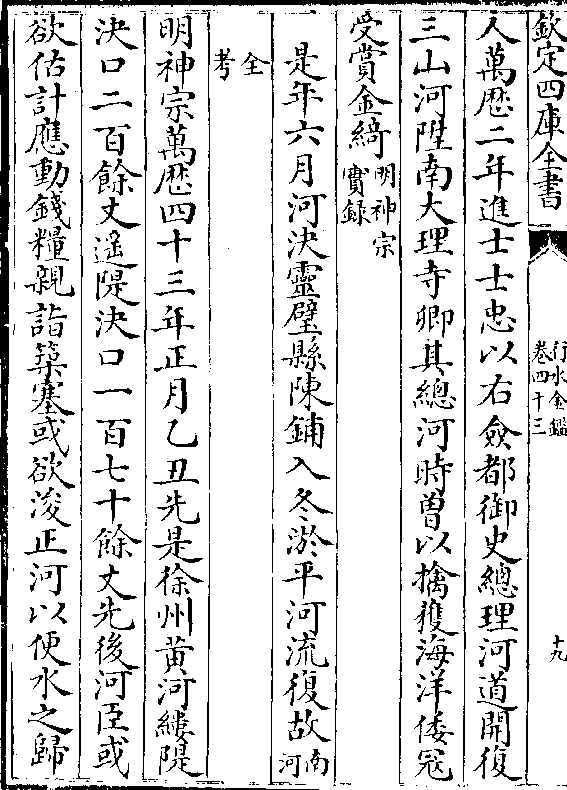 欽定四庫全書
行水金鑑
卷四十三
十九
人萬厯二年進士士忠以右僉都御史總理河道開復
三山河陞南大理寺卿其總河時曽以擒獲海洋倭冦
受賞金綺明神宗
實録
是年六月河決靈璧縣陳鋪入冬淤平河流復故南
河
全
考
明神宗萬厯四十三年正月乙丑先是徐州黄河縷隄
決口二百餘丈遥隄決口一百七十餘丈先後河臣或
欲估計應動錢糧親詣築塞或欲浚正河以便水之歸